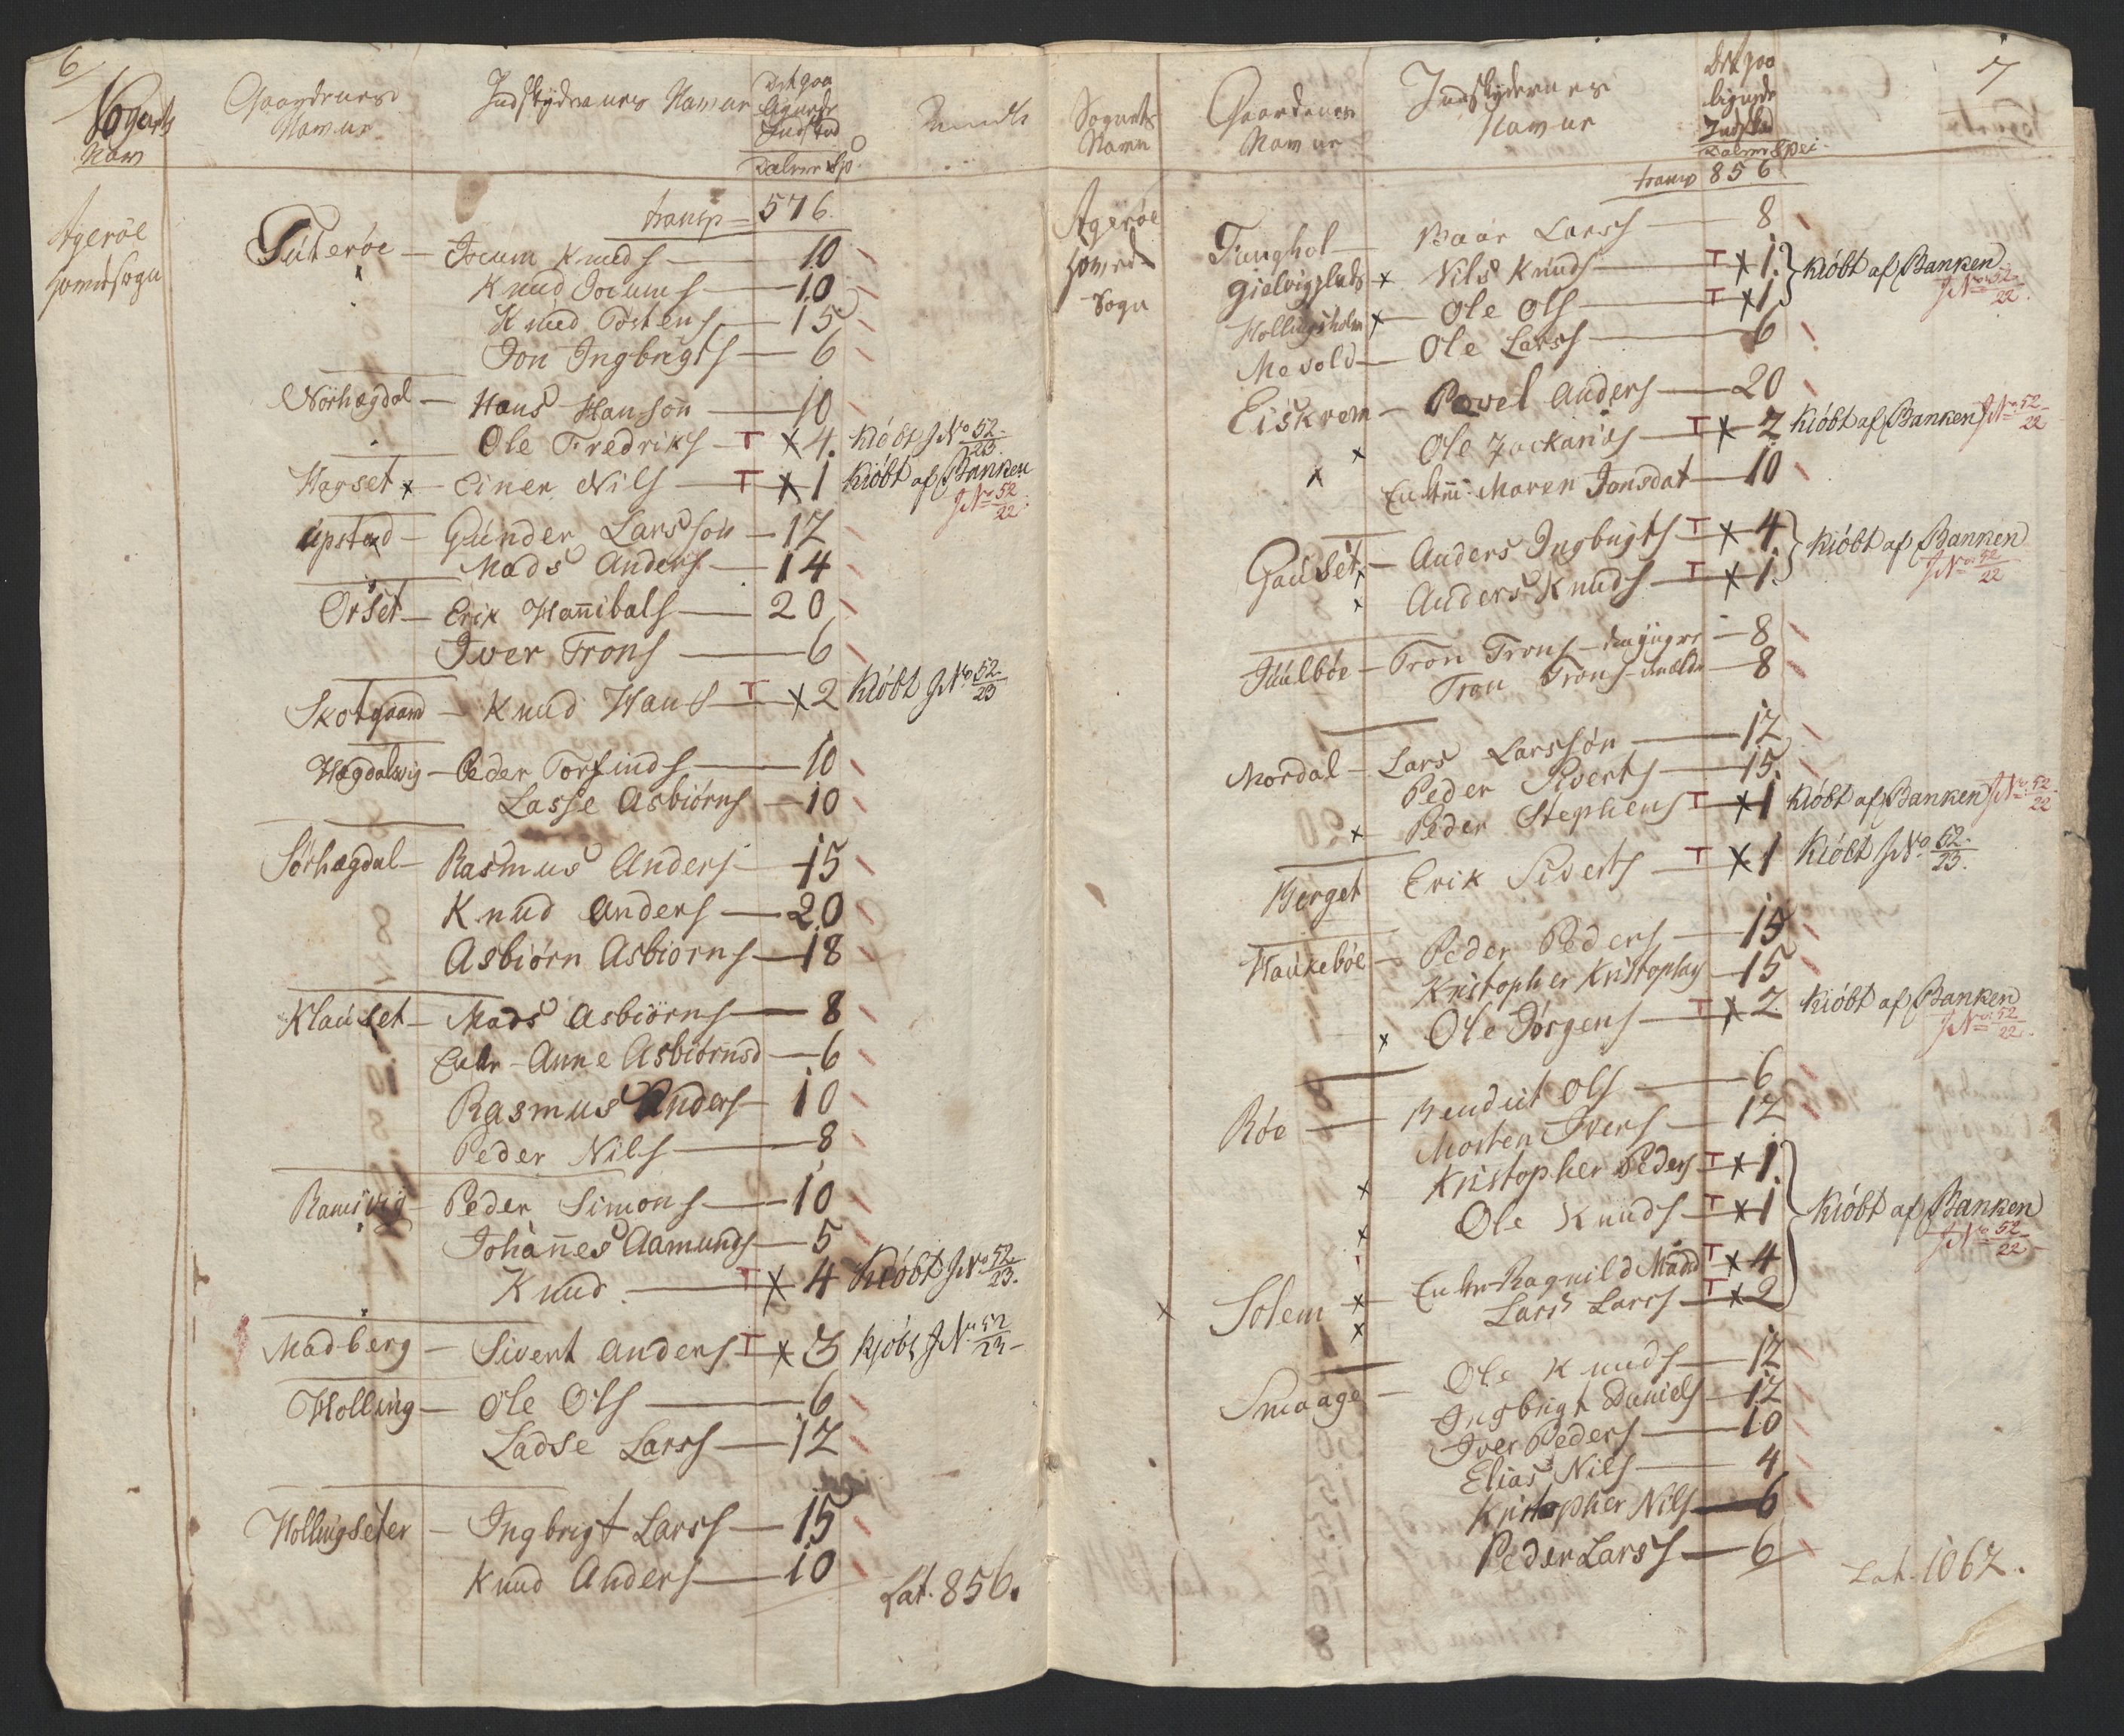 6
Sognets Navn
Gaardenes Navne
Indskydernes Navne
Det paa lignede Indskud
Daler Sp.
Agerøe
transp - 576.
Suterøe - Jocum Knuds - 10
Knud Jocums - 10
Knud Tostens - 15
Jon Ingbrigts - 6
Nörhægdal - Hans Hansön - 10
Ole Fredriks - T x 4. Kiöbt JNo 52/23
Hagset x - Einer Nils - T x 1 Kiöbt af Banken
JNo 52/22
Upstad - Gúnder Larssön - 12
Mads Anders - 14
Orset - Erik Hannibals - 20
Iver Trons - 6
Skotgaard - Knud Hans - T x 2 Kiöbt JNo 52/23
Hægdalsvig - Peder Torfinds - 10
Lasse Asbiörns - 10
Sörhægdal - Rasmus Anders - 15
Knud Anders - 20
Asbiørn Asbiørns - 18
Klauset - Mads Asbiörns - 8
Enke - Anne Asbiørnsd - 6
Rasmus Anders - 10
Peder Nils - 8
Ramsvig - Peder Simons - 10
Johannes Aamunds - 5
Knud - T x 4 Kiöbt JNo 52/23.
Madberg - Sivert Anders T x 3 Kjöbt JNo 52/23
Holling - Ole Ols - 6
Ladse Lars - 12
Hollingseter - Ingbrigt Lars - 15
Knud Anders - 10
Lat. 856.
7
Sognets Navn
Gaardenes Navne
Indskydernes Navne
Det paa lignede Indskud
Daler Spei.
transp 856
Agerøe
Sogn
Tunghol - Baar Lars - 8
Gielvigplads x Nils Knuds - T x 1. } Kiöbt af Banken
JNo 52/22.
Hollingsholm x - Ole Ols - T x 1
Mevold - Ole Lars - 6
Eiskrem - Povel Anders - 20
x Ole Zackarias - T x 2 Kiöbt af Banken JNo 52/22
x Enke Maren Jonsdat - 10
Gauset x - Anders Ingbrigts T x 4 } Kiöbt af Banken
JNo 52/22
x Anders Knuds - T x 1
Júulbøe - Tron Trons - den yngre - 8
Tron Trons - - 8
Mordal - Lars Larssön - 12
Peder Siverts - 15
x Peder Stephens T x 1 Kiöbt af Banken JNo 52/22
Berget Erik Siverts - T x 1 Kiöbt JNo 52/23.
Haúkebøe - Peder Peders - 15
Kristopher Kristophs - 15
x Ole Jörgens - T x 2 Kiöbt af Banken
JNo 52/22.
Røe - Bendict Ols - 6
Morten Ivers - 12
x Kristopher Peders T x 1.
x Ole Knuds - T x 1 } Kiöbt af Banken
JNo 52/22
x Solem x Enke Ragnild Madsd T x 4
x Lars Lars - T x 2
Smaage - Ole Knuds - 12
Ingbrigt Daniels - 12
Iver Peders - 10
Elias Nils - 4
Kristopher Nils - 6
Peder Lars - 6
Lat. 1062.